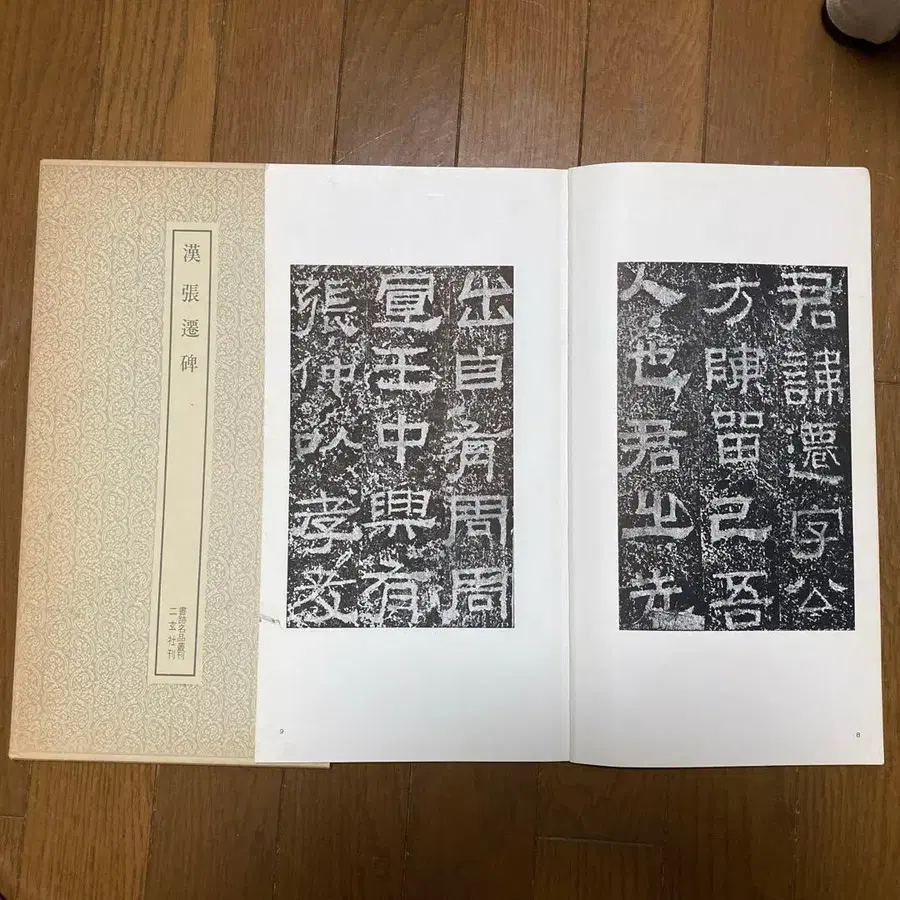 漢張遷碑
書跡名品叢刊
二玄社刊
君諱遷字公
方陳留己吾
人也君之先
8
出自有周周
宣王中興有
張仲以孝友
9